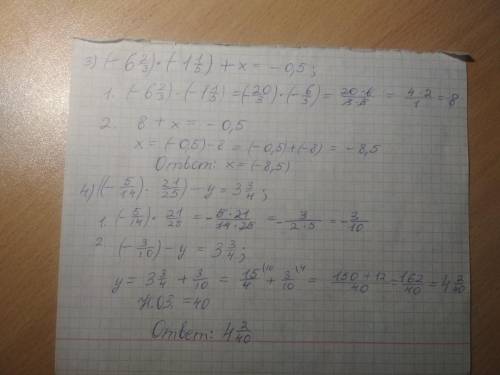 3) (-6 2/3) · (-1 1/5) + x = -0,5;
1. (-6 2/3) · (-1 1/5) = (-20/3) · (-6/5) = 20·6/3·5 = 4·2/1 = 8
2. 8 + x = -0,5
x = (-0,5) - 8 = (-0,5) + (-8) = -8,5
Ответ: x = (-8,5)
4) ((-5/14) · 21/25) - y = 3 3/4;
1. (-5/14) · 21/25 = -5·21/14·25 = -3/2·5 = -3/10
2. (-3/10) - y = 3 3/4;
y = 3 3/4 + 3/10 = 15/4 + 3/10 = 150+12/40 = 162/40 = 4 2/40
Н.О.З. = 40
Ответ: 4 2/40